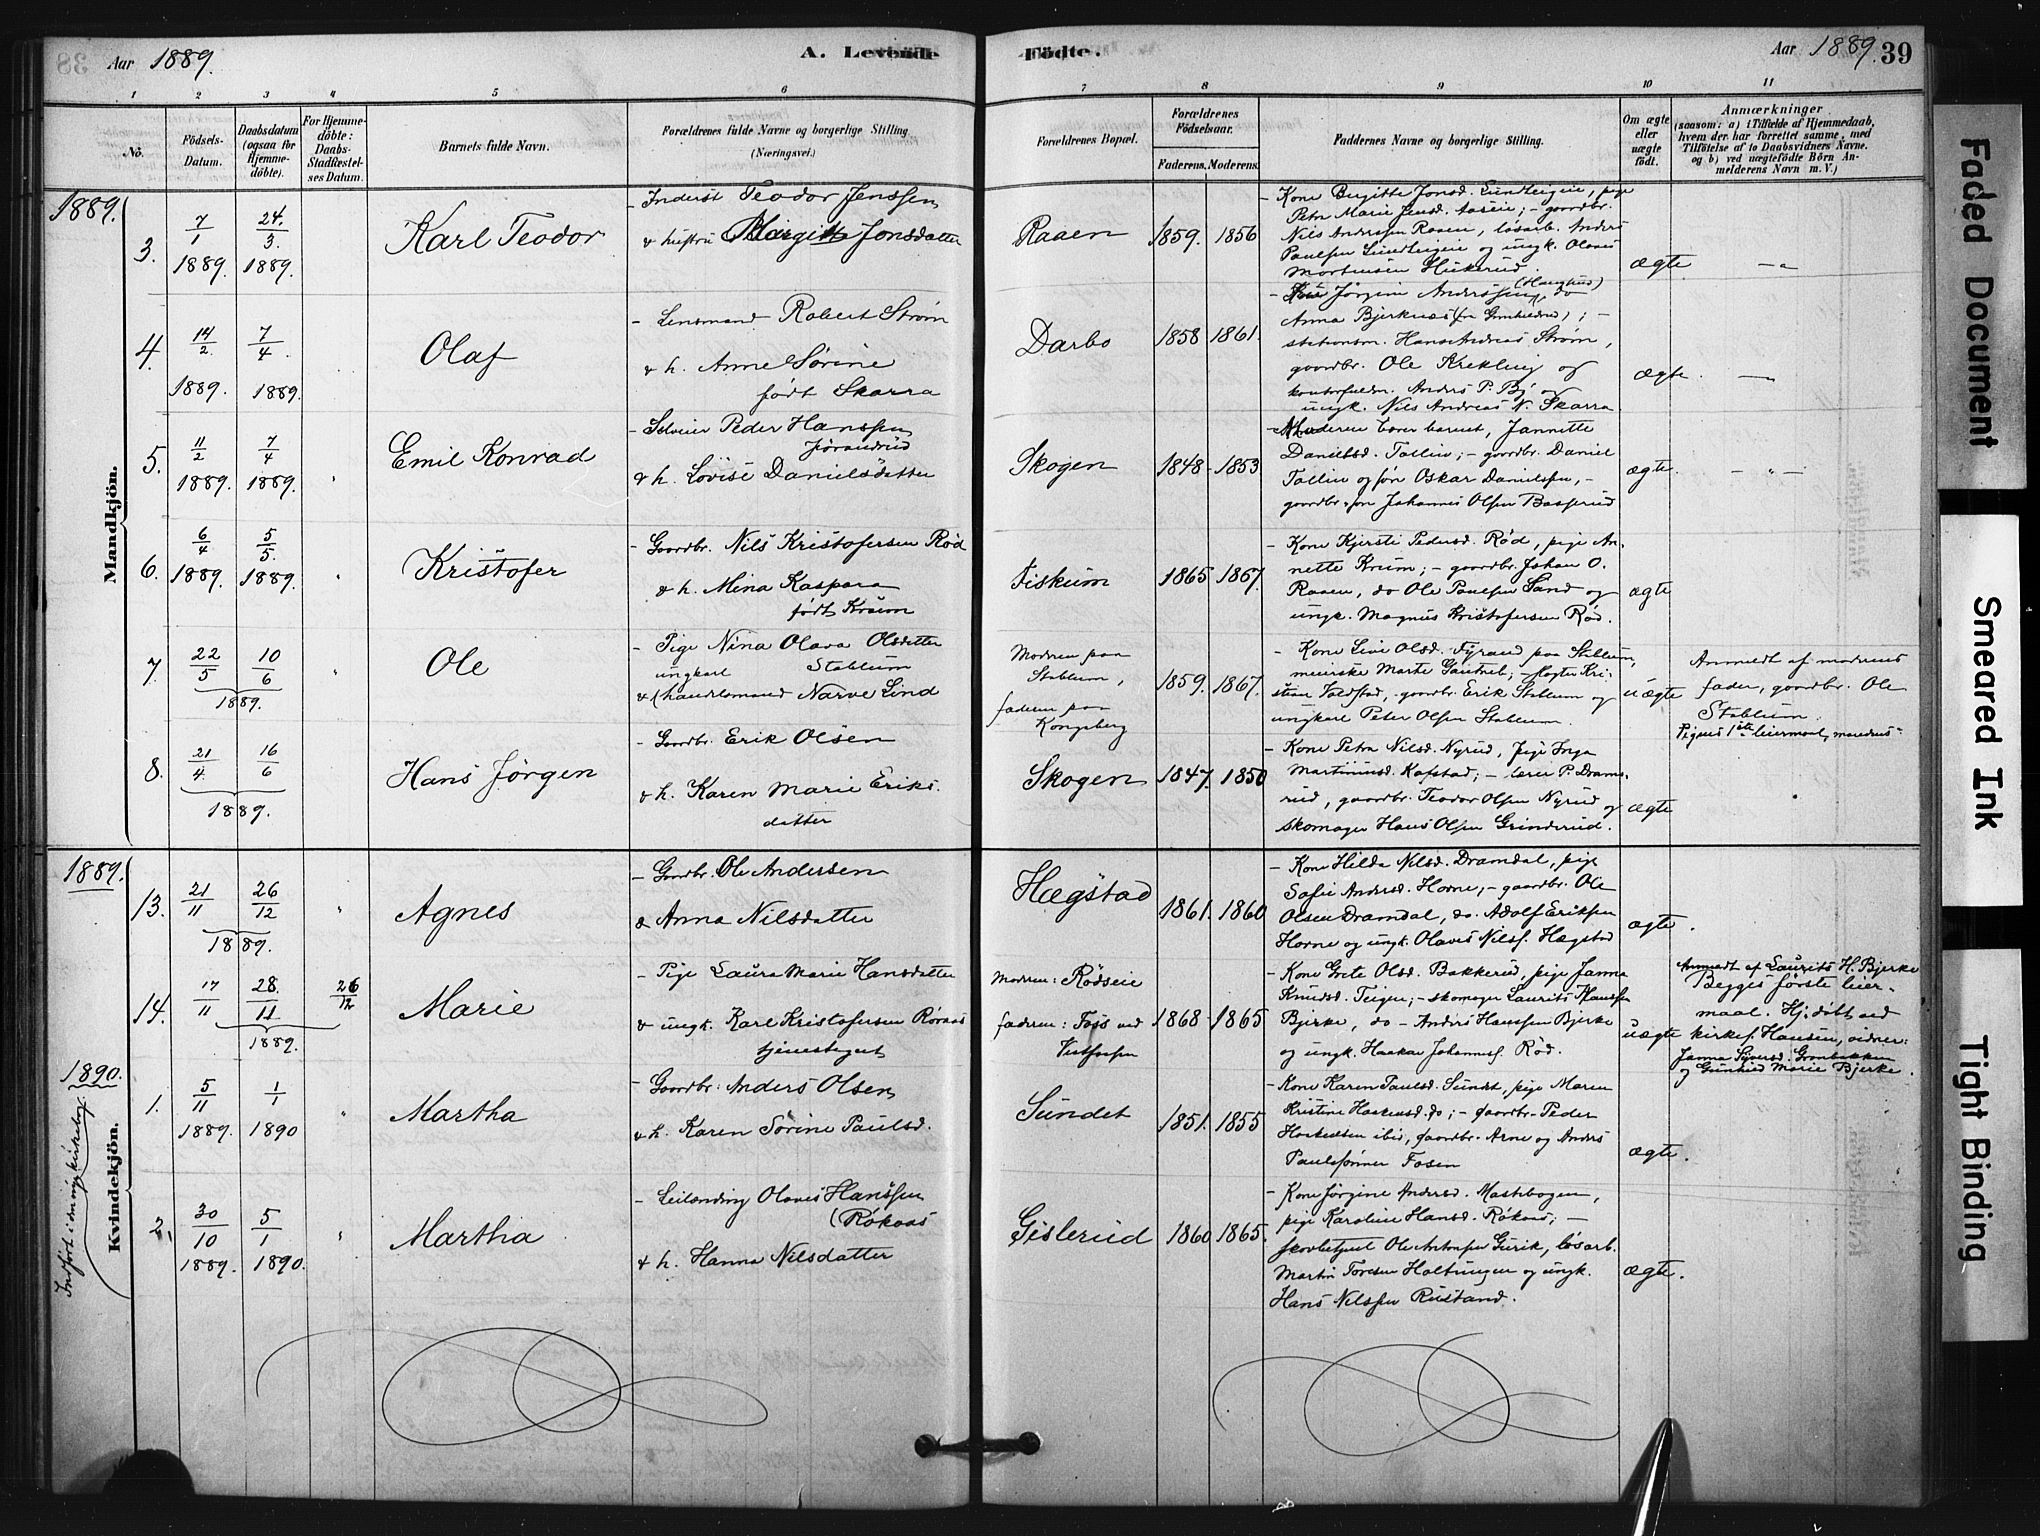 Aar 1889.
A. Levende Födte.
Aar 1889. 39
1 2 3 4 5 6 7 8 9 10 11
No.
Födsels-Datum.
Daabsdatum (ogsaa for Hjemmedöbte).
For Hjemmedöbte: Daabs-Stadfæstelses Datum.
Barnets fulde Navn.
Forældrenes fulde Navne og borgerlige Stilling.
(Næringsvei.)
Forældrenes Bopæl.
Forældrenes Födselsaar.
Faderens. Moderens.
Faddernes Navne og borgerlige Stilling.
Om ægte eller uægte födt.
Anmærkninger
(saasom: a) i Tilfælde af Hjemmedaab, hvem der har forrettet samme, med Tilföielse af to Daabsvidners Navne. og b) ved uægtefödte Börn Anmelderens Navn m. V.)
1889.
Mandkjön.
3. 7/1 1889. 24/3. 1889.
Karl Teodor
- Inderst Teodor Jenssen
& hustru Birgitte Jonsdatter
Raaen
1859. 1856
- Kone Birgitte Jonsd. , pige
Petra Marie Jensd. ; - gaardbr.
Nils Anderssen Raaen, løsarb. Anders
Paulsen og ungk. Olaves
Mortensen Hukerud.
ægte
4. 14/2. 1889. 7/4. 1889.
Olaf
- Lensmand Robert Strøm
& h. Anne Sørine
født Skarra
Darbo
1858 1861.
- Jørgine Anderssen, do
Anna Bjerknæs ; -
stationsm. Hans Andreas Strøm,
gaardbr. Ole Krekling og
Anders P. By og
ungk. Nils Andreas N. Skarra
ægte.
5. 11/2 1889. 7/4 1889.
Emil Konrad
- Selveier Peder Hanssen
Jørandrud
& h. Lovise Danielsdatter
Skogen
1848 1853
- Moderen bærer barnet, Jannette
Danielsd. Tollin; - gaardbr. Daniel
Tollin og søn Oskar Danielssen, -
gaardbr.søn Johannes Olsen Basserud
ægte.
6. 6/4 1889. 5/5. 1889.
Kristofer
- Gaardbr. Nils Kristofersen Rød
& h. Mina Kaspara
født Krøm
Fiskum
1865 1867.
- Kone Kjersti Pedersd. Rød, pige An-
nette Krøm; - gaardbr. Johan O.
Raaen, do Ole Paulsen Sand og
ungk. Magnus Kristofersen Rød.
ægte
7. 22/5 10/6 1889.
Ole
- Pige Nina Olava Olsdatter
Stablum
ungkarl
& (handlsmand Narve Lind
Modren paa
Stablum,
faderen paa
Kongsberg
1859. 1867.
- Kone Live Olsd. Fyrand paa Stablum,
meierske Marte ; - Kri-
stian , gaardbr. Erik Stablum og
ungkarl Peter Olsen Stablum.
uægte
Anmeldt af modrens
fader, gaardbr. Ole
Stablum.
Pigens 1ste leiermaal, mandens -
8. 21/4. 16/6 1889.
Hans Jørgen
- Gaardbr. Erik Olsen
& h. Karen Marie Eriks-
datter
Skogen
1847. 1850
- Kone Petra Nilsd. Nyrud, pige Inga
Martinusd. Kofstad; - lærer P. Drams-
rud, gaardbr. Teodor Olsen Nyrud og
skomager Hans Olsen Grinderud.
ægte
1889.
13. 21/11 26/12 1889.
Agnes
- Gaardbr. Ole Andersen
& Anna Nilsdatter
Hægstad
1861. 1860
- Kone Hilda Nilsd. Dramdal, pige
Sofie Andersd. Horne; - gaardbr. Ole
Olsen Dramdal, do. Adolf Eriksen
Horne og ungk. Olaves Nilss. Hægstad
ægte.
14. 17/11 28./11 26/12 1889.
Marie
- Pige Laura Marie Hansdatter
& ungk. Karl Kristofersen
tjenestegut
Modren: Rødseie
faderen: Foss ved
Vestfossen
1868 1865
- Kone Grete Olsd. Bakkerud, pige Janna
Knudsd. Teigen; - skomager Laurits Hanssen
Bjerke, do - Anders Hanssen Bjerke
og ungk. Haakar Johanness. Rød.
uægte
Anmeldt af Laurits H. Bjerke
Begges første leier-
maal. Hj. døbt ved
kirkes. Hansen, vidner:
Janna Syversd. Grønbakken
og Gunhild Marie Bjerke.
1890.
Indført i den ny kirkebog.
Kvindekjön.
1. 5/11 1889. 1/1 1890
Martha
- Gaardbr. Anders Olsen
& h. Karen Sørine Paulsd.
Sundet
1851. 1855
- Kone Karen Paulsd. Sundet, pige Maren
Kristine Haakensd. do; - Gaardbr. Peder
ibid, Gaardbr. Arne og Anders
Paulssønner Fosen
ægte.
2. 30/10 1889. 5/1 1890.
Martha
- Leilænding Olaves Hanssen
(Røkaas
& h. Hanna Nilsdatter
Gislerud
1860 1865.
- Kone Jørgine Andersd. Mastebogen,
pige Karoline Hansd. Røkaas; -
skovbetjent Ole , løsarb.
Martin Toresen Holtungen og ungk.
Hans Nilssen Rustand.
ægte.
Faded Document
Smeared Ink
Tight Binding